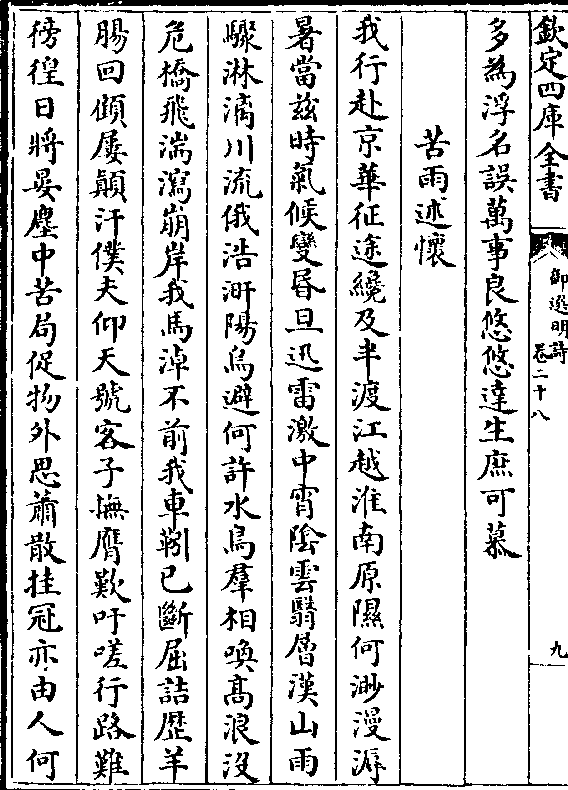 欽定四庫全書
御選明詩
卷二十八
九
多為浮名誤萬事良悠悠達生庶可慕
苦雨述懷
我行赴京華征途纔及半渡江越淮南原隰何渺漫溽
暑當兹時氣候變昏旦迅雷激中宵陰雲翳層漢山雨
驟淋漓川流俄浩汧陽烏避何許水鳥羣相喚高浪沒
危橋飛湍瀉崩岸我馬淖不前我車靷已斷屈詰歴羊
腸回傾屢顛汗僕夫仰天號客子撫膺歎吁嗟行路難
徬徨日將晏塵中苦局促物外思蕭散挂冠亦由人何